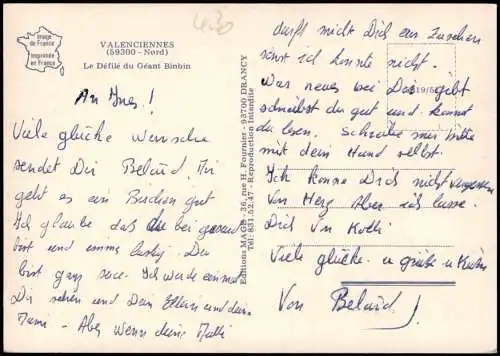 430
Image
de France
Imprimée
en France
VALENCIENNES
(59300 - Nord)
Le Défilé du Géant Binbin
An Ines!
Viele glücke wunsche
sendet Dir Belaid. Mir
geht es ein Bischen gut
Ich glaube das du bei gesund
bist und imme lustig. Du
bist ganz susse. Ich wurde einmal
Dir sehen und Dein Eltern und dein
Mami - Aber wenn deine Mutti
Editions MAGE - 3/6, rue H. Fournier - 93700 DRANCY
Tél : 831.52.47 - Reproduction Interdite
darfst nicht Dich ein zusehen
sonst ich konnte nicht.
Was neues bei Dir gibt
schreibst du gut und kannst
du lesen. Schreibe mir bitte
mit dein Hand selbst.
Ich kanne Dich nicht vergessen
Von Herz Aber ich lasse
Dich von
Viele glücke u grüße u Küsse
Von Belaid